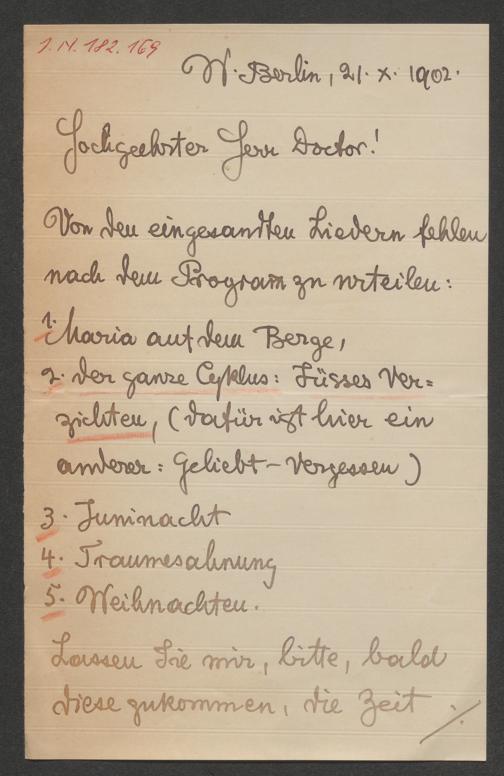 I.N. 182.169
W. Berlin, 21. X. 1902.
Hochgeehrter Herr Doctor!
Von den eingesandten Liedern fehlen
nach dem Program̅ zu urteilen:
1. Maria auf dem Berge,
2. der ganze Cyklus: Süsses Ver=
zichten, (dafür ist hier ein
anderer: Geliebt – Vergessen)
3. Juninacht
4. Traumesahnung
5. Weihnachten.
Lassen Sie mir, bitte, bald
diese zukommen, die Zeit ./.